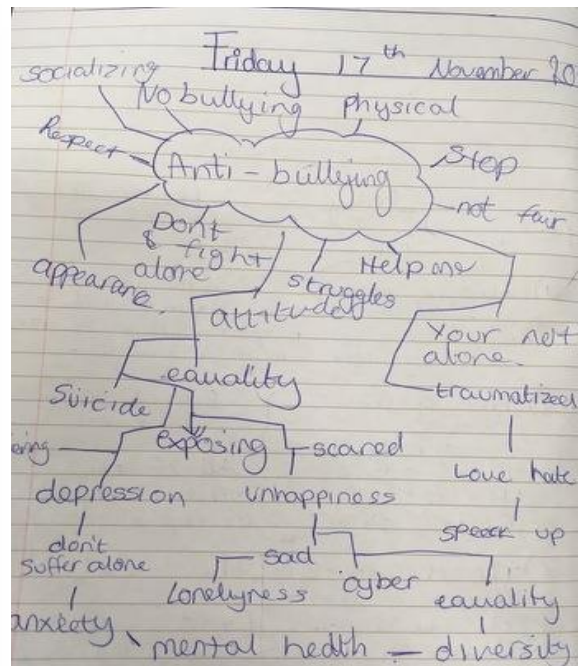 Friday 17th November 20
socializing
No bullying
Physical
Respect
Anti-bullying
Stop
not fair
Dont
& fight
alone
appearane.
Help me
struggles
attitudes
Your not
alone.
eauality
traumatized
Suicide
exposing
scared
ering
Love hate
depression
unhappiness
speack up
don't
suffer alone
sad
Lonelyness
cyber
eauality
anxiety
mental health — diversity